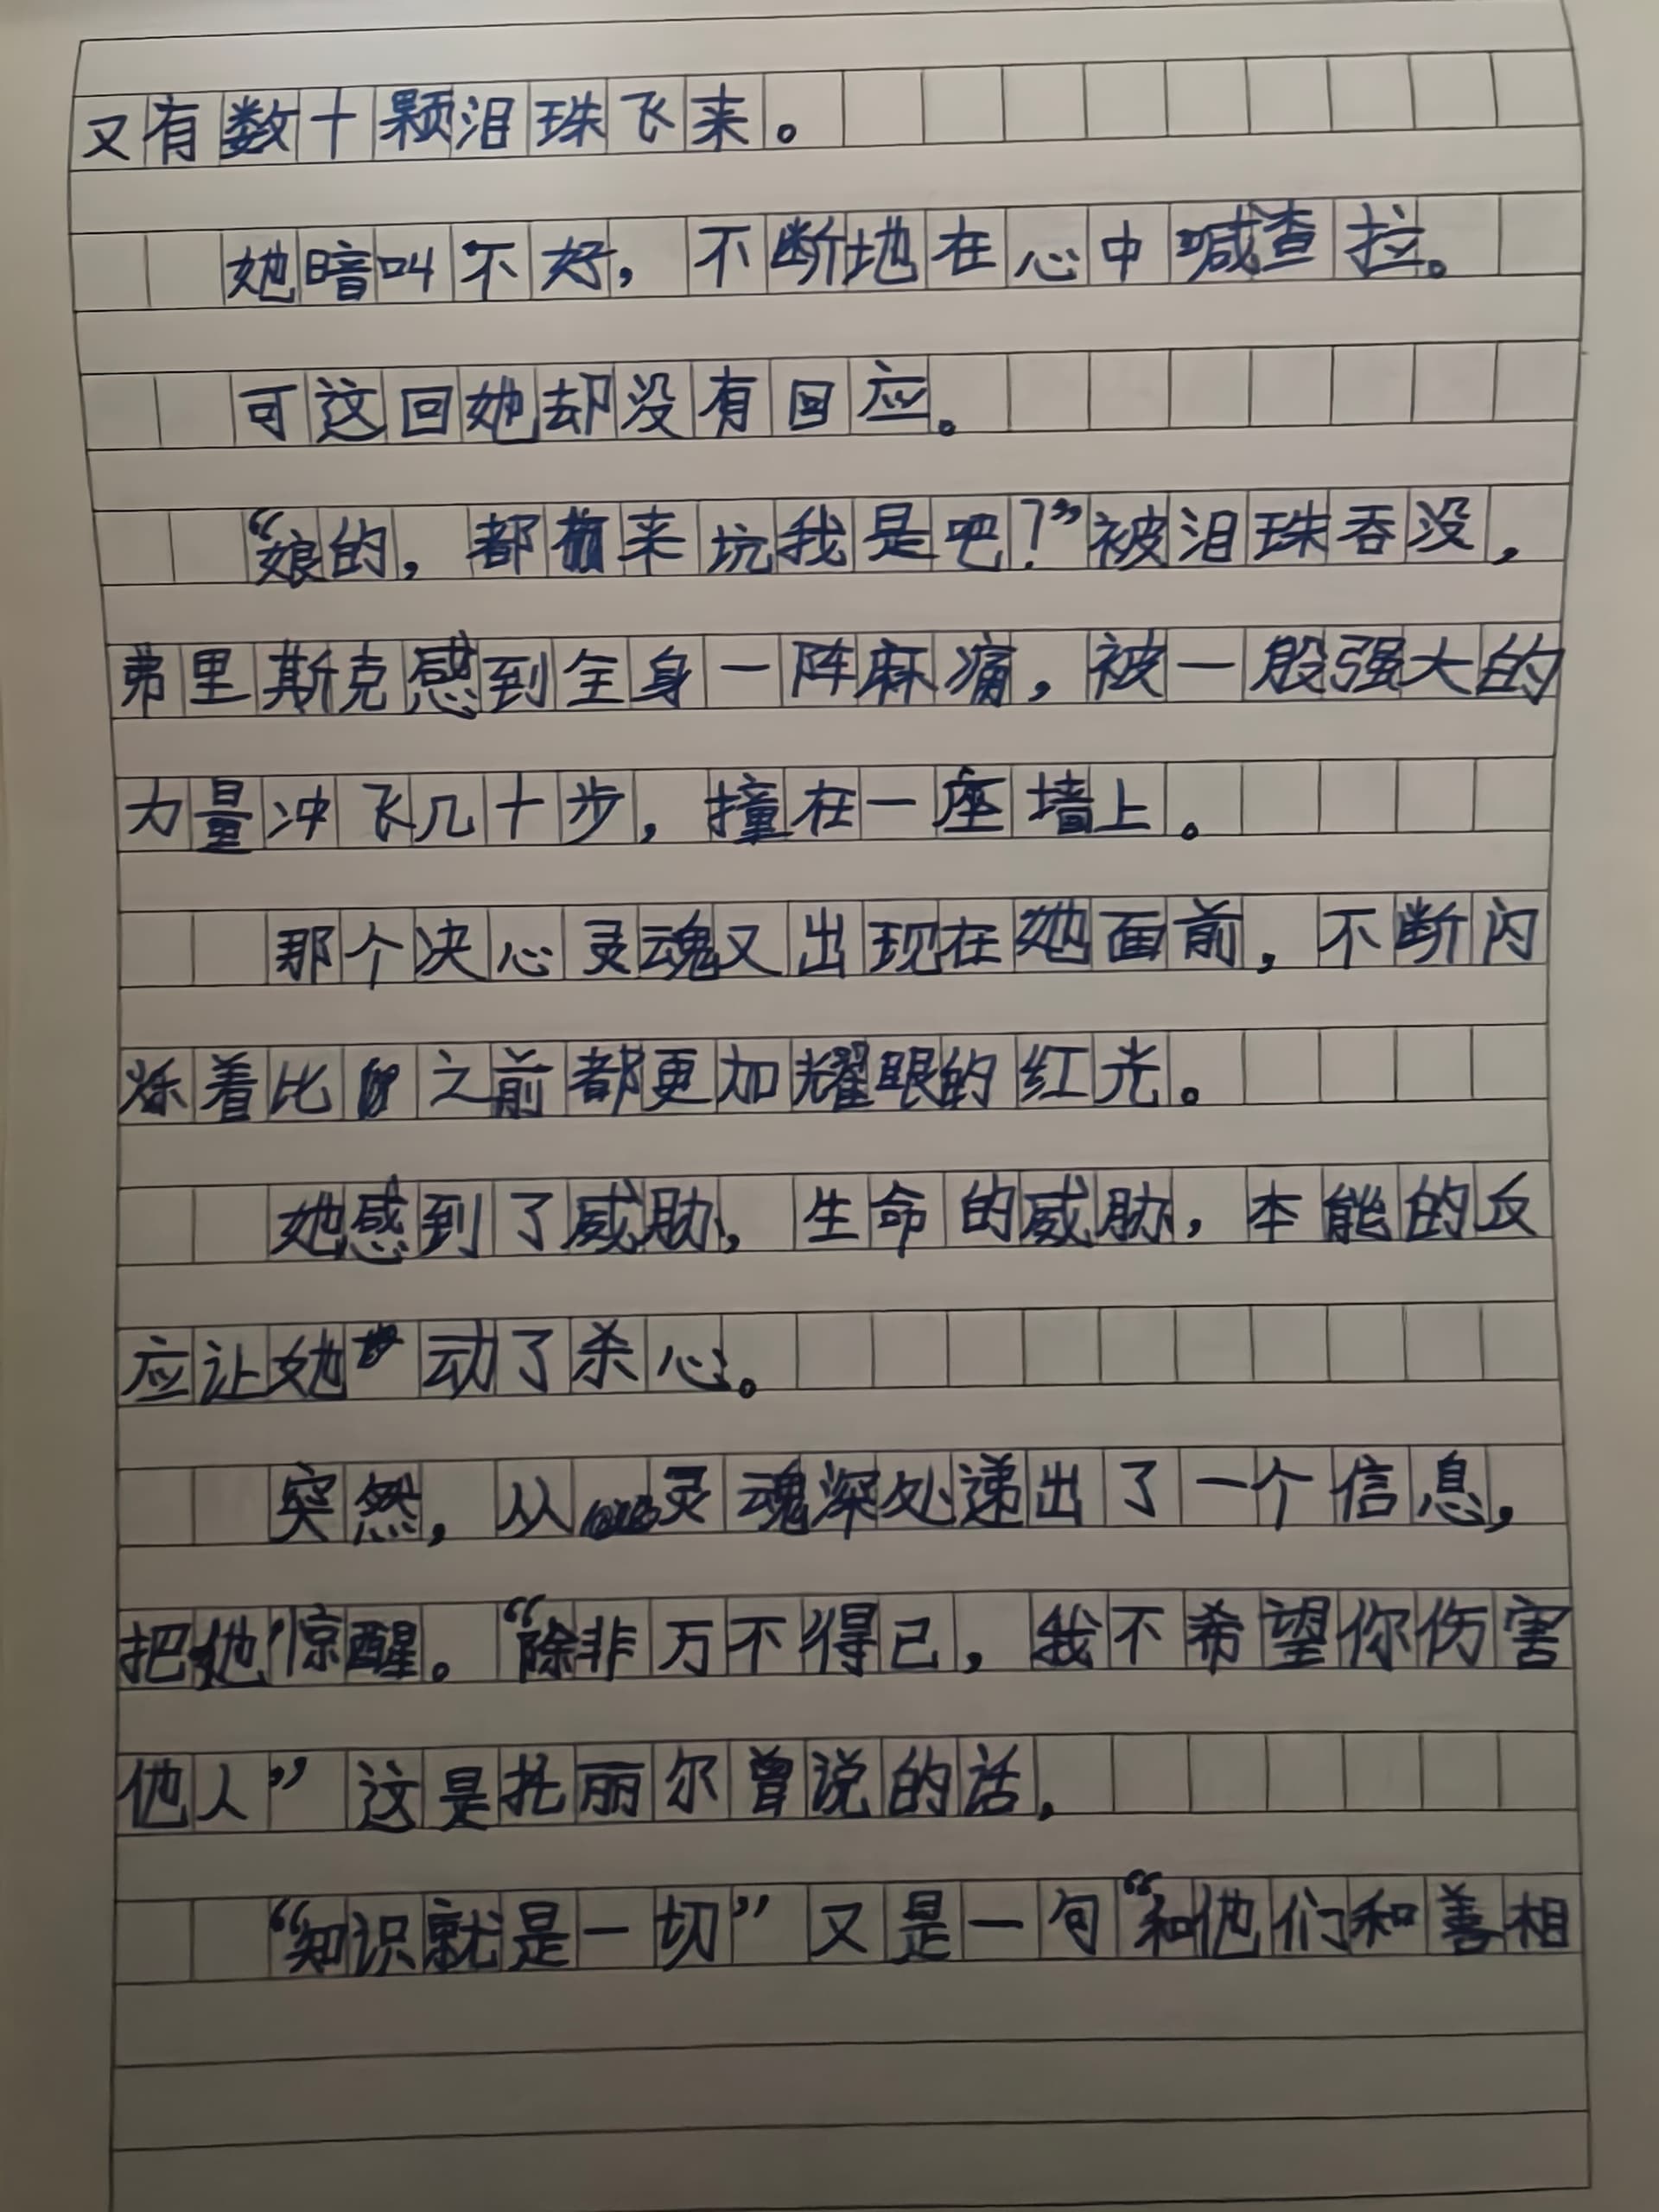 又有数十颗泪珠飞来。
她暗叫不好，不断地在心中喊查拉。
可这回她却没有回应。
“娘的，都来坑我是吧？”被泪珠吞没，
弗里斯克感到全身一阵麻痛，被一股强大的
力量冲飞几十步，撞在一座墙上。
那个决心灵魂又出现在她面前，不断闪
烁着比之前都更加耀眼的红光。
她感到了威胁，生命的威胁，本能的反
应让她动了杀心。
突然，从灵魂深处递出了一个信息，
把她惊醒。“除非万不得已，我不希望你伤害
他人”这是托丽尔曾说的话，
“知识就是一切”又是一句“和他们和善相